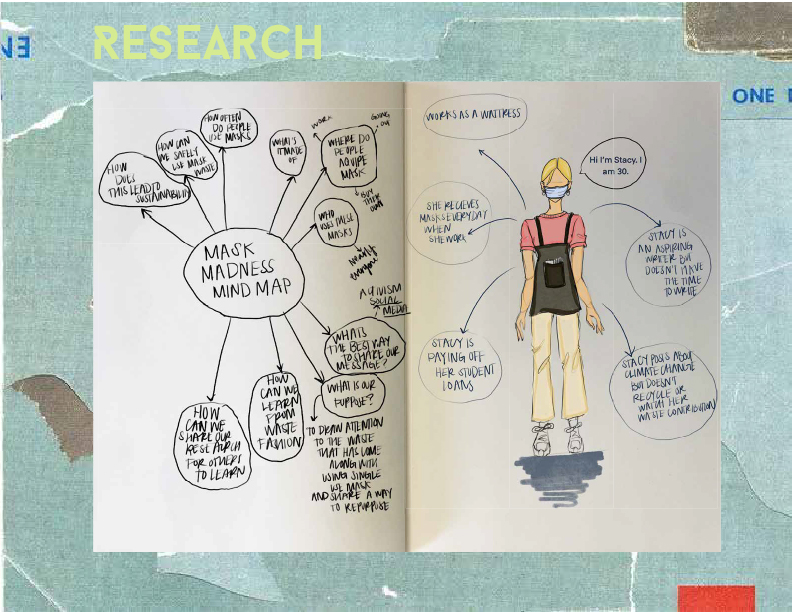 RESEARCH
ONE
HOW OFTEN
DO PEOPLE
USE MASKS
HOW CAN
WE SAFELY
USE MASK
WASTE
HOW
DOES
THIS LEAD TO
SUSTAINABILITY
WHAT'S
IT MADE
OF
WORK
GOING
OUT
WHERE DO
PEOPLE
AQUIRE
MASK
BUY
THEIR
OWN
WHO
USES THESE
MASKS
nearly
everyone
MASK
MADNESS
MIND MAP
ACTIVISM
SOCIAL
MEDIA
WHATS
THE BEST WAY
TO SHARE OUR
MESSAGE?
WHAT IS OUR
PURPOSE?
TO DRAW ATTENTION
TO THE WASTE
THAT HAS COME
ALONG WITH
USING SINGLE
USE MASK
AND SHARE A WAY
TO REPURPOSE
HOW
CAN WE
LEARN
FROM
WASTE
FASHION
HOW
CAN WE
SHARE OUR
RESEARCH
FOR OTHERS
TO LEARN
WORKS AS A WAITRESS
Hi I'm Stacy. I
am 30.
SHE RECIEVES
MASKS EVERYDAY
WHEN
SHE WORK
STACY IS
AN ASPIRING
WRITER BUT
DOESN'T HAVE
THE TIME
TO WRITE
STACY IS
PAYING OFF
HER STUDENT
LOANS
STACY POSTS ABOUT
CLIMATE CHANGE
BUT DOESN'T
RECYCLE OR
WATCH HER
WASTE CONTRIBUTION